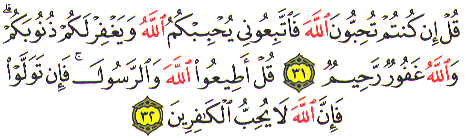 قُلْ إِن كُنتُمْ تُحِبُّونَ ٱللَّهَ فَٱتَّبِعُونِى يُحْبِبْكُمُ ٱللَّهُ وَيَغْفِرْ لَكُمْ ذُنُوبَكُمْ ۗ
وَٱللَّهُ غَفُورٌ رَّحِيمٌ ٣١ قُلْ أَطِيعُوا۟ ٱللَّهَ وَٱلرَّسُولَ ۖ فَإِن تَوَلَّوْا۟
فَإِنَّ ٱللَّهَ لَا يُحِبُّ ٱلْكَـٰفِرِينَ ٣٢